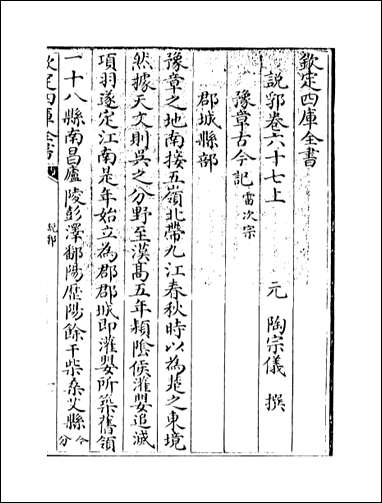 欽定四庫全書
説郛卷六十七上
元 陶宗儀 撰
豫章古今記 雷次宗
郡城縣部
豫章之地南接五嶺北帶九江春秋時以為楚之東境
然據天文則吳之分野至漢髙五年潁隂侯灌嬰追滅
項羽遂定江南是年始立為郡郡城即灌嬰所築舊領
一十八縣南昌廬陵彭澤鄱陽歴陽餘干柴桑艾縣今分
欽定四庫全書
説郛
一